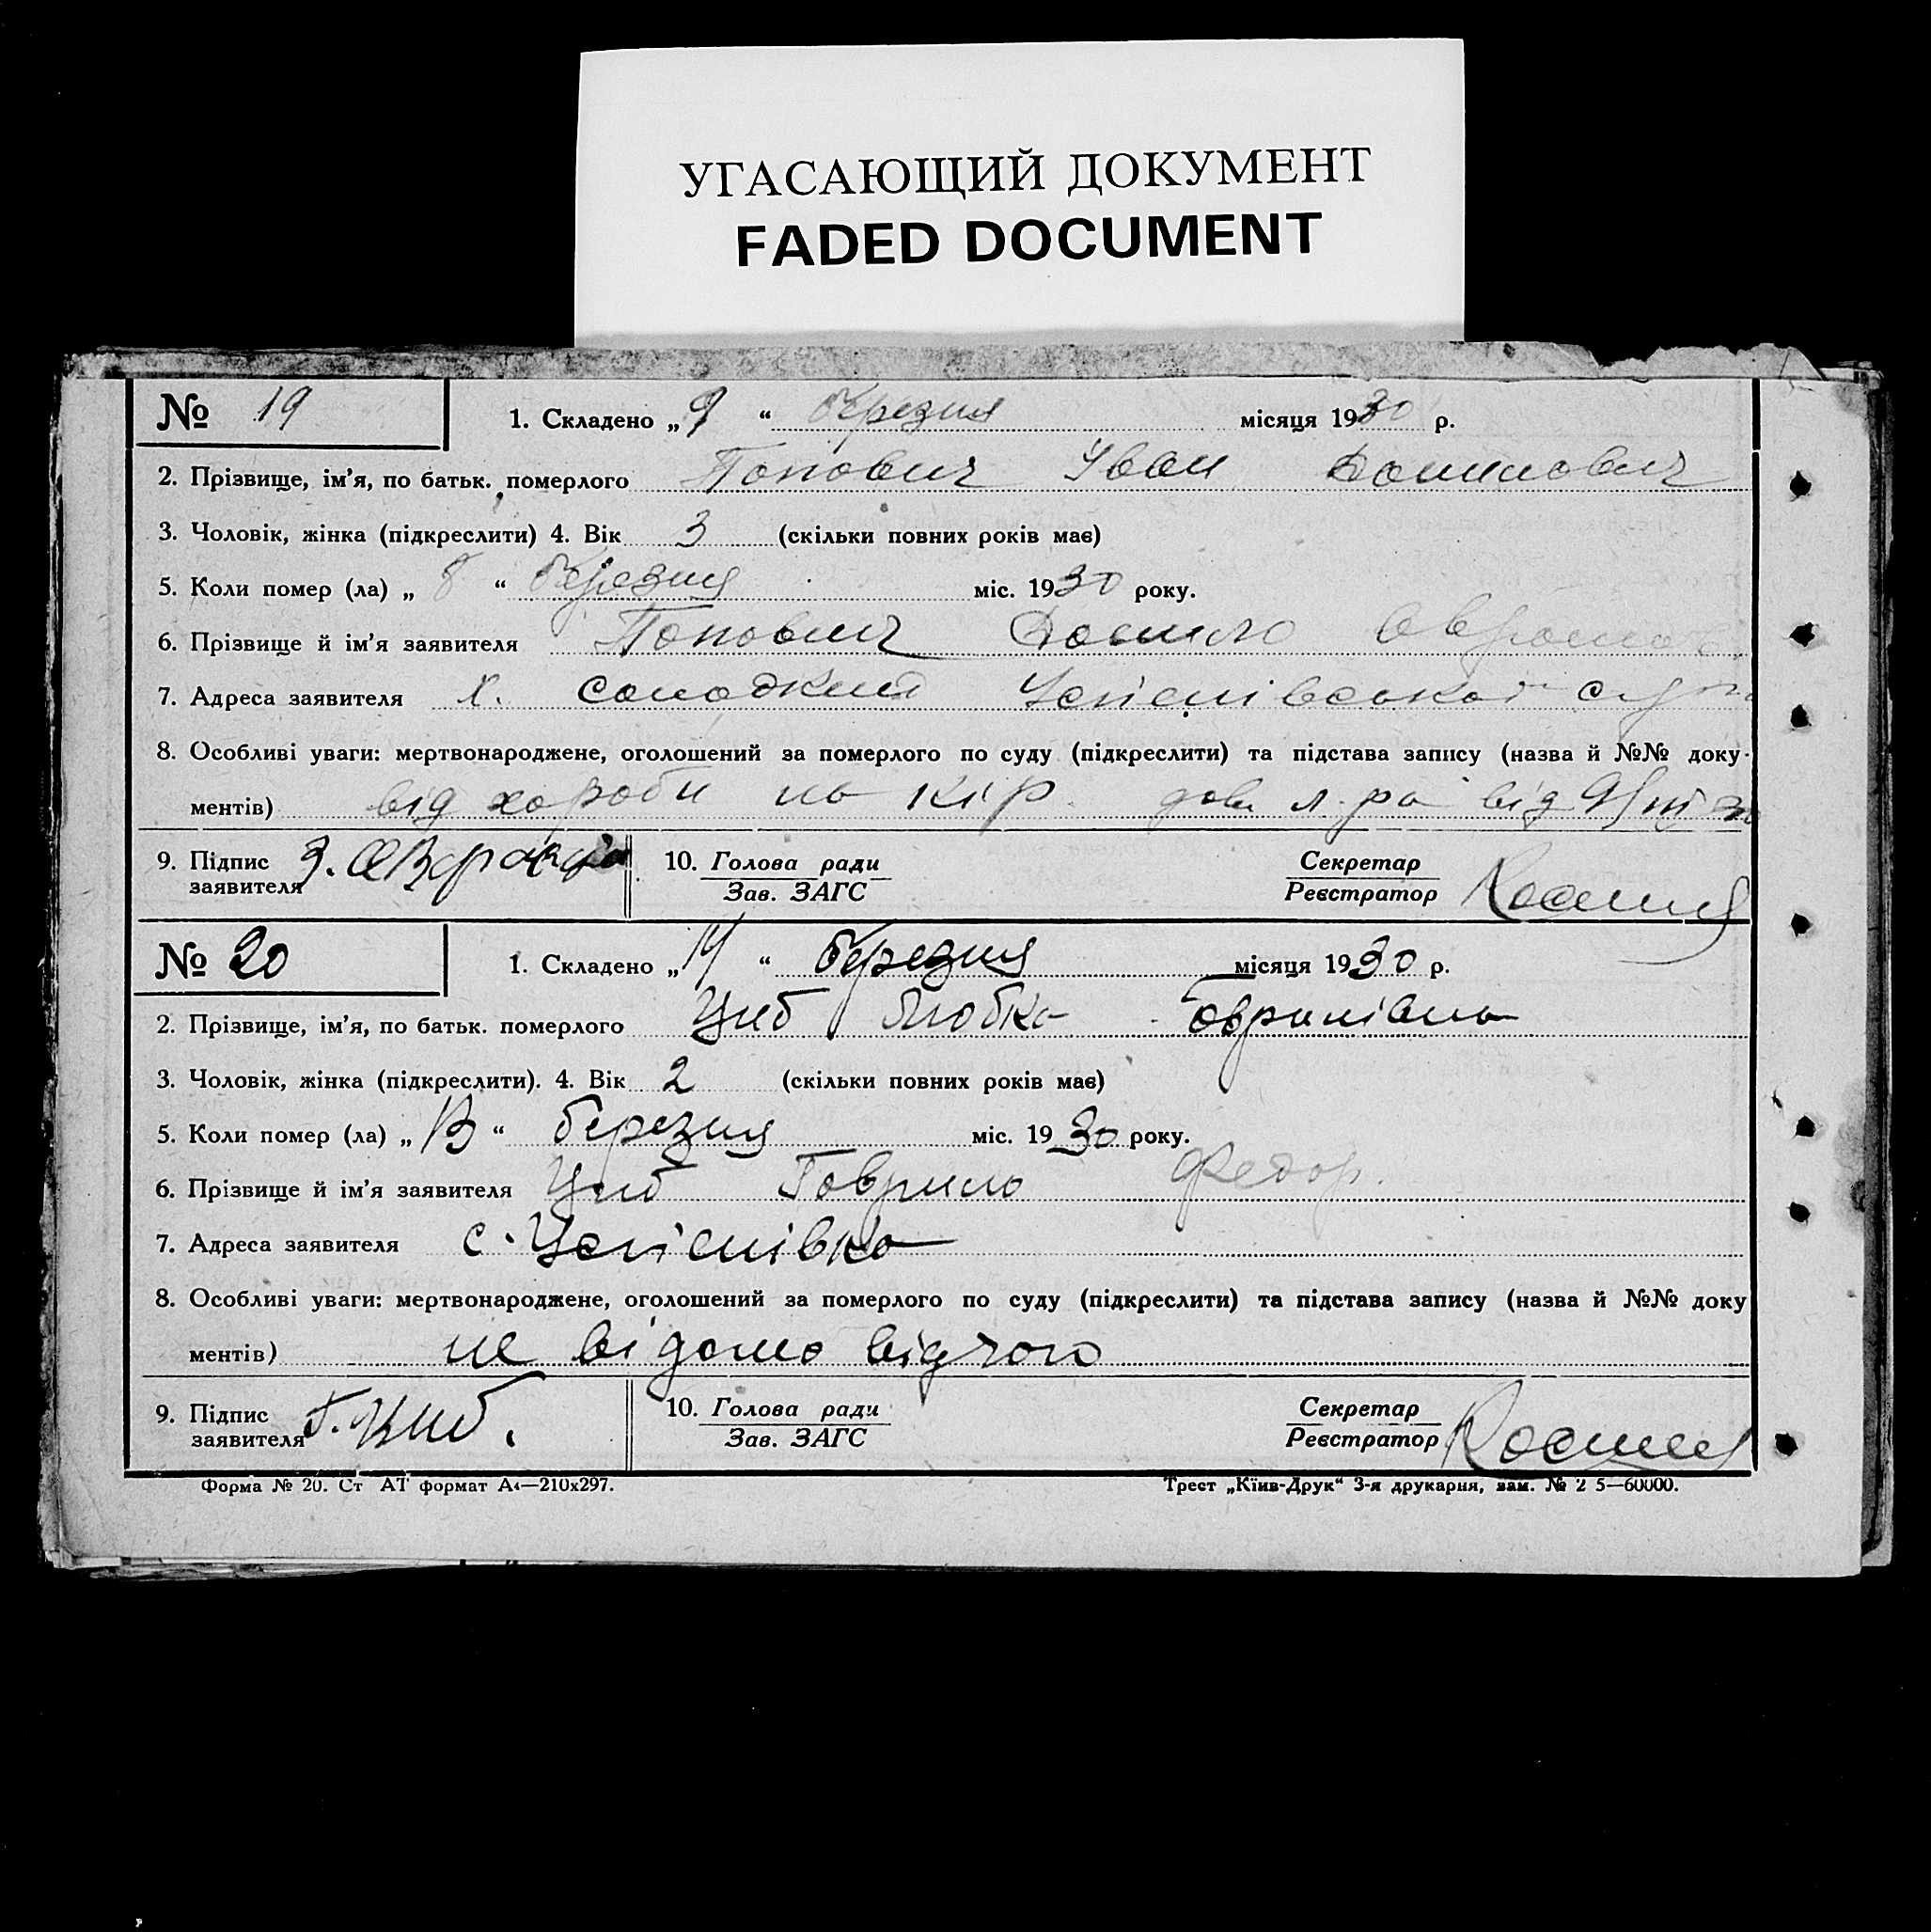 УГАСАЮЩИЙ ДОКУМЕНТ
FADED DOCUMENT
№ 19 1. Складено „ 9 “ березня місяця 1930 р.
2. Прізвище, ім'я, по батьк. померлого Попович Іван
3. Чоловік, жінка (підкреслити) 4. Вік 3 (скільки повних років має)
5. Коли помер (ла) „ 8 “ березня міс. 1930 року.
6. Прізвище й ім'я заявителя Попович
7. Адреса заявителя х. Солодкий Успенівської
8. Особливі уваги: мертвонароджене, оголошений за померлого по суду (підкреслити) та підстава запису (назва й №№ доку-
ментів) від хороби на кір від 9/III 30
9. Підпис
заявителя
10. Голова ради
Зав. ЗАГС
Секретар
Реєстратор
№ 20 1. Складено „ 14 “ березня місяця 1930 р.
2. Прізвище, ім'я, по батьк. померлого Циб Любка Гаврилівна
3. Чоловік, жінка (підкреслити). 4. Вік 2 (скільки повних років має)
5. Коли помер (ла) „ 13 “ березня міс. 1930 року.
6. Прізвище й ім'я заявителя Циб Гаврило Федор.
7. Адреса заявителя с. Успенівка
8. Особливі уваги: мертвонароджене, оголошений за померлого по суду (підкреслити) та підстава запису (назва й №№ доку
ментів) не відомо відчого
9. Підпис
заявителя Г. Циб.
10. Голова ради
Зав. ЗАГС
Секретар
Реєстратор
Форма № 20. Ст АТ формат А4—210х297. Трест „Київ-Друк“ 3-я друкарня, зам. № 2 5—60000.